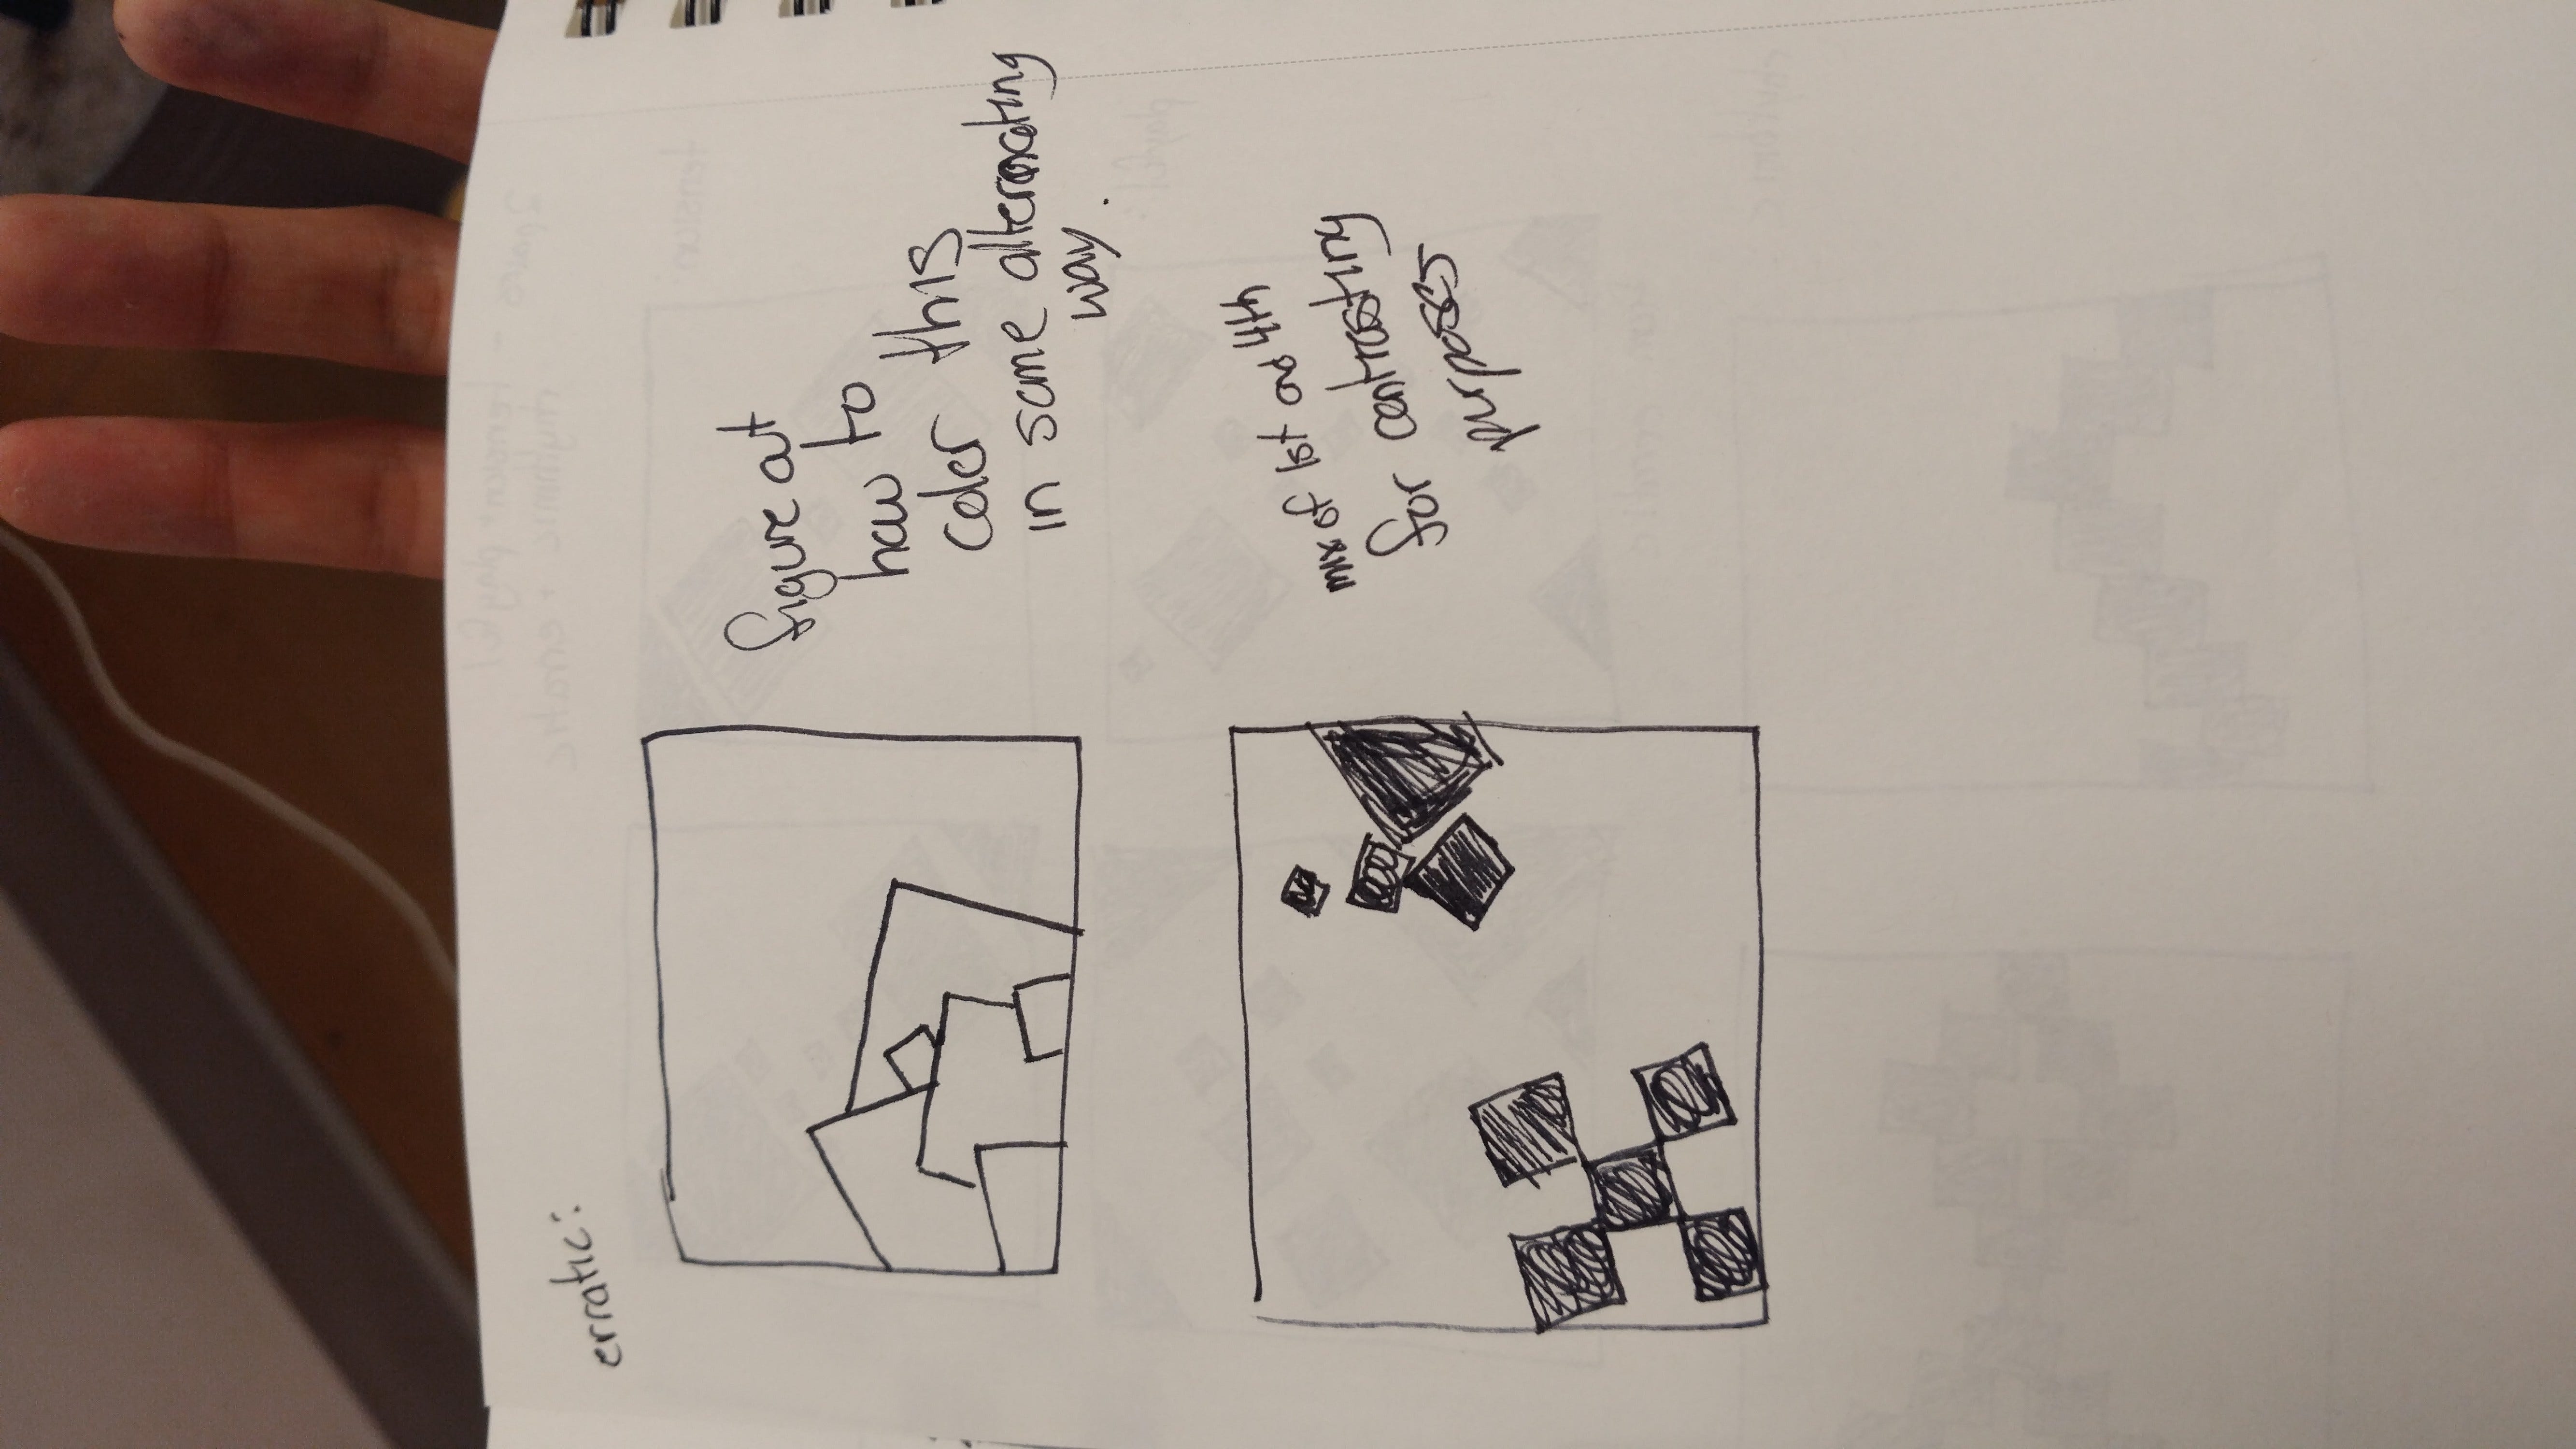 erratic:
figure out
how to
color this
in some alternating
way.
mix of 1st and 4th
for contrasting
purposes